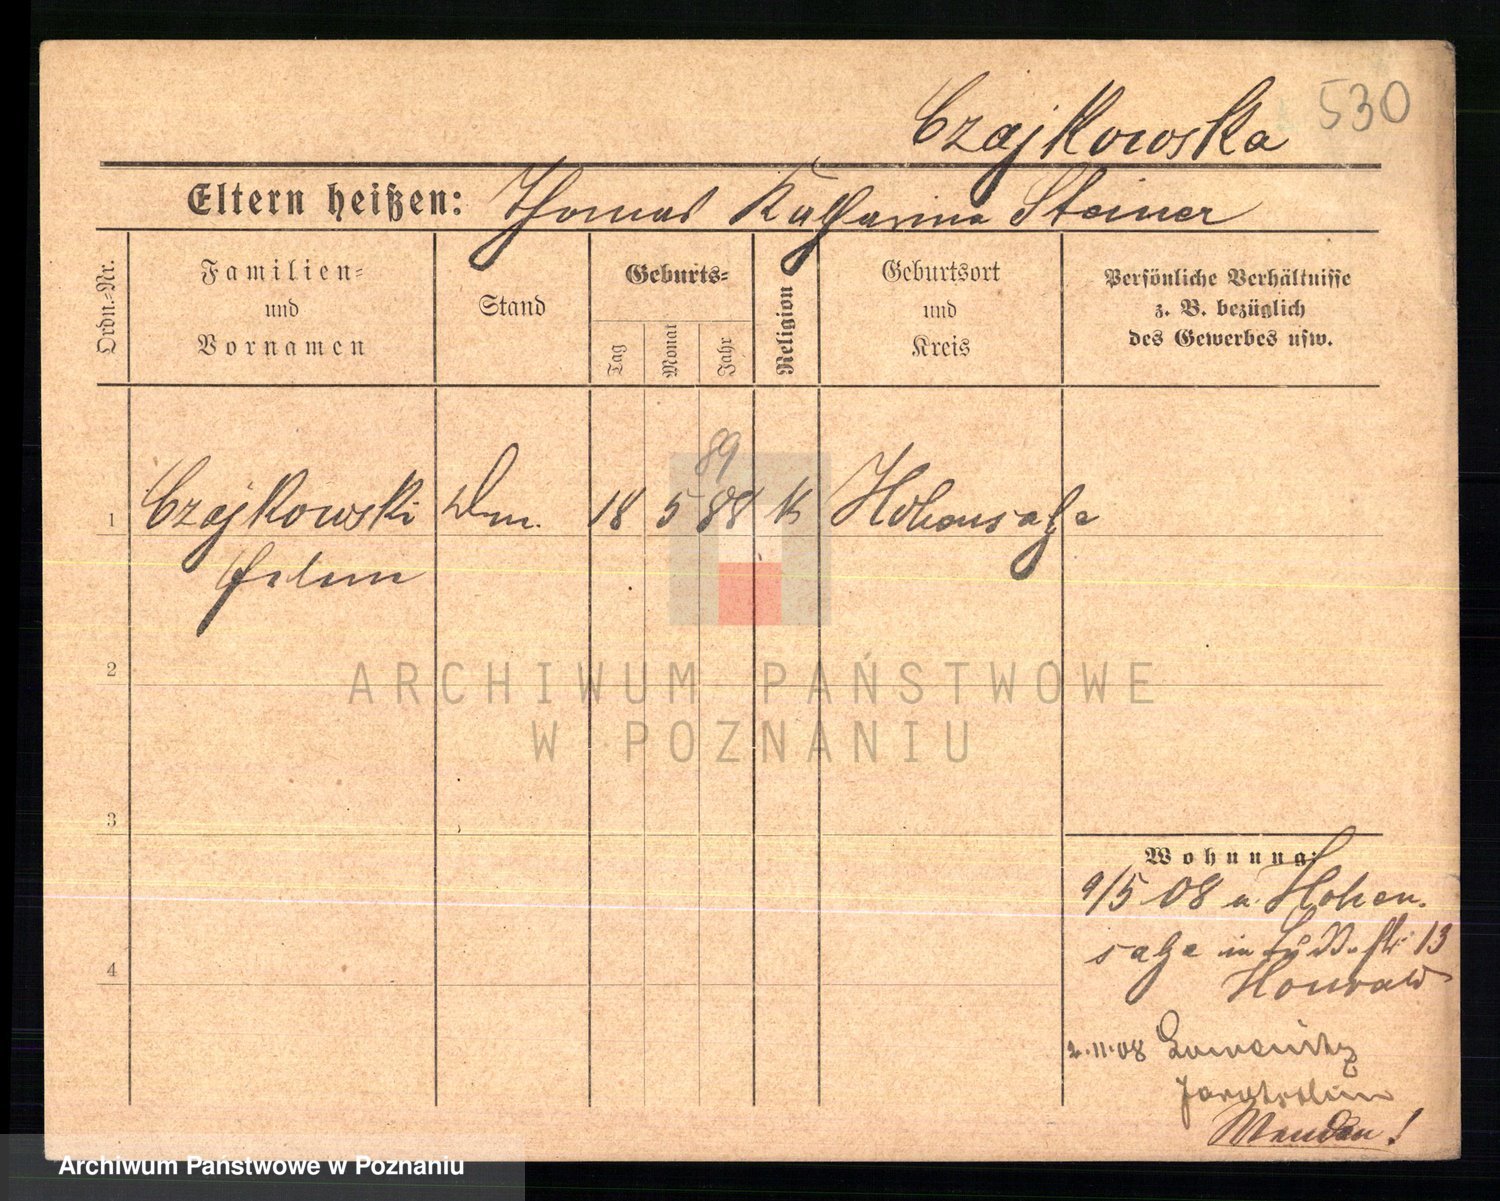 530
Czajkowska
Eltern heißen: Thomas Katharina Steiner
Ordn.-Nr.
Familien-
und
Vornamen
Stand
Geburts-
Tag
Monat
Jahr
Religion
Geburtsort
und
Kreis
Persönliche Verhältnisse
z. B. bezüglich
des Gewerbes usw.
89
1 Czajkowski 18 5 88 k Hohensalza
2
ARCHIWUM PAŃSTWOWE
W POZNANIU
3
Wohnung:
9/5 08 a. Hohen-
salza in 13
4
2.11.08
Wenden!
Archiwum Państwowe w Poznaniu